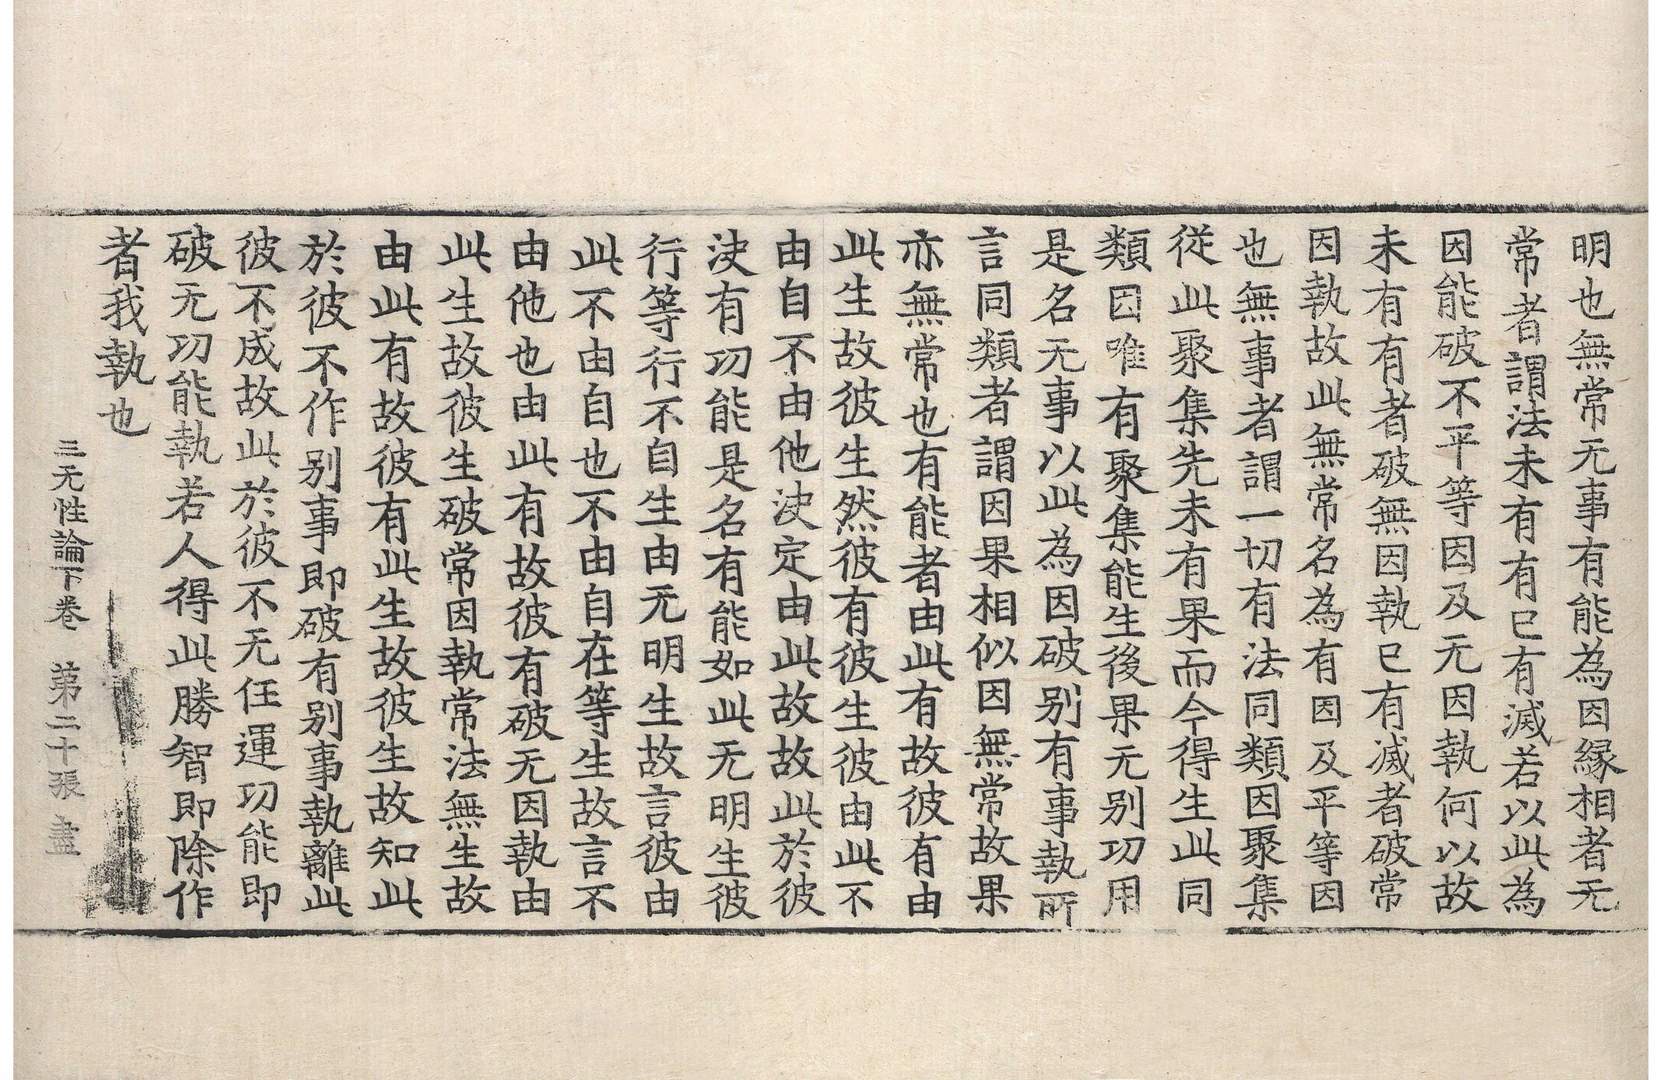 明也無常无事有能為因緣相者无
常者謂法未有有已有滅若以此為
因能破不平等因及无因執何以故
未有有者破無因執已有滅者破常
因執故此無常名為有因及平等因
也無事者謂一切有法同類因聚集
從此聚集先未有果而今得生此同
類因唯有聚集能生後果无別功用
是名无事以此為因破別有事執所
言同類者謂因果相似因無常故果
亦無常也有能者由此有故彼有由
此生故彼生然彼有彼生彼由此不
由自不由他决定由此故故此於彼
决有功能是名有能如此无明生彼
行等行不自生由无明生故言彼由
此不由自也不由自在等生故言不
由他也由此有故彼有破无因執由
此生故彼生破常因執常法無生故
由此有故彼有此生故彼生故知此
於彼不作別事即破有別事執離此
彼不成故此於彼不无任運功能即
破无功能執若人得此勝智即除作
者我執也
三无性論下卷　第二十張　盡